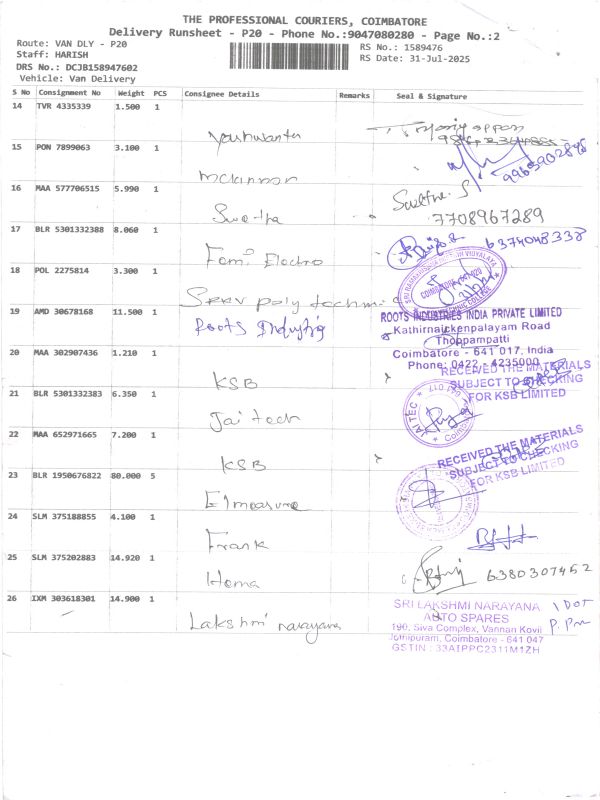 THE PROFESSIONAL COURIERS, COIMBATORE
Delivery Runsheet - P20 - Phone No.:9047080280 - Page No.:2
Route: VAN DLY - P20
Staff: HARISH
DRS No.: DCJB158947602
Vehicle: Van Delivery
RS No.: 1589476
RS Date: 31-Jul-2025
S No Consignment No Weight PCS Consignee Details Remarks Seal & Signature
14 TVR 4335339 1.500 1
Yashwanta
15 PON 7899063 3.100 1
9965902895
16 MAA 577706515 5.990 1
Swetha Swetha. S
7708967289
17 BLR 5301332388 8.060 1
Fami Electro 6374048338
18 POL 2275814 3.300 1
SRRV poly techni
COIMBATORE
19 AMD 30678168 11.500 1
Roots Industry
ROOTS INDUSTRIES INDIA PRIVATE LIMITED
Kathirnaickenpalayam Road
Thoppampatti
Coimbatore - 641 017, India
Phone: 0422 - 4235000
20 MAA 302907436 1.210 1
KSB
RECEIVED THE MATERIALS
SUBJECT TO CHECKING
FOR KSB LIMITED
21 BLR 5301332383 6.350 1
Jai tech
JAI TEC
22 MAA 652971665 7.200 1
KSB
RECEIVED THE MATERIALS
SUBJECT TO CHECKING
FOR KSB LIMITED
23 BLR 1950676822 80.000 5
Elmeasure
24 SLM 375188855 4.100 1
Frank
25 SLM 375202883 14.920 1
Hema 6380307452
26 IXM 303618301 14.900 1
Lakshmi narayana
SRI LAKSHMI NARAYANA
AUTO SPARES
190, Siva Complex, Vannan Kovil
Jothipuram, Coimbatore - 641 047
GSTIN : 33AIPPC2311M1ZH